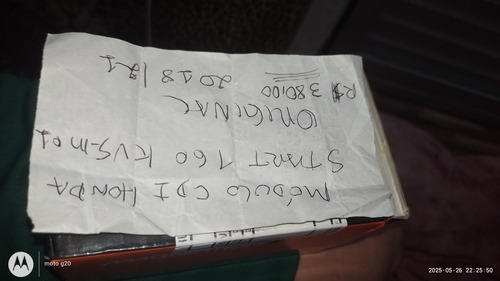 MÓDULO CDI HONDA
START 160 KVS-M01
ORIGINAL
R$ 380,00
2018/21
moto g20
2025-05-26 22:25:50